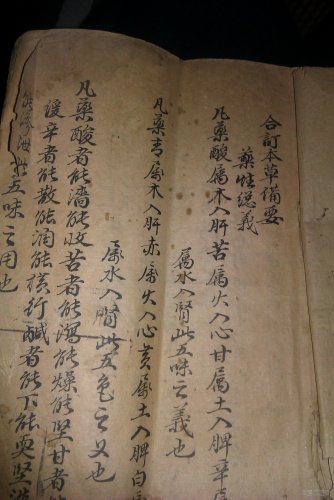 合訂本草備要
藥性總義
凡藥酸屬木入肝苦屬火入心甘屬土入脾辛
屬水入腎此五味之義也
凡藥青屬木入肝赤屬火入心黄屬土入脾白
屬水入腎此五色之义也
凡藥酸者能濇能收苦者能瀉能燥能坚甘者能
缓辛者能散能潤能横行鹹者能下能耎坚
五味之用也